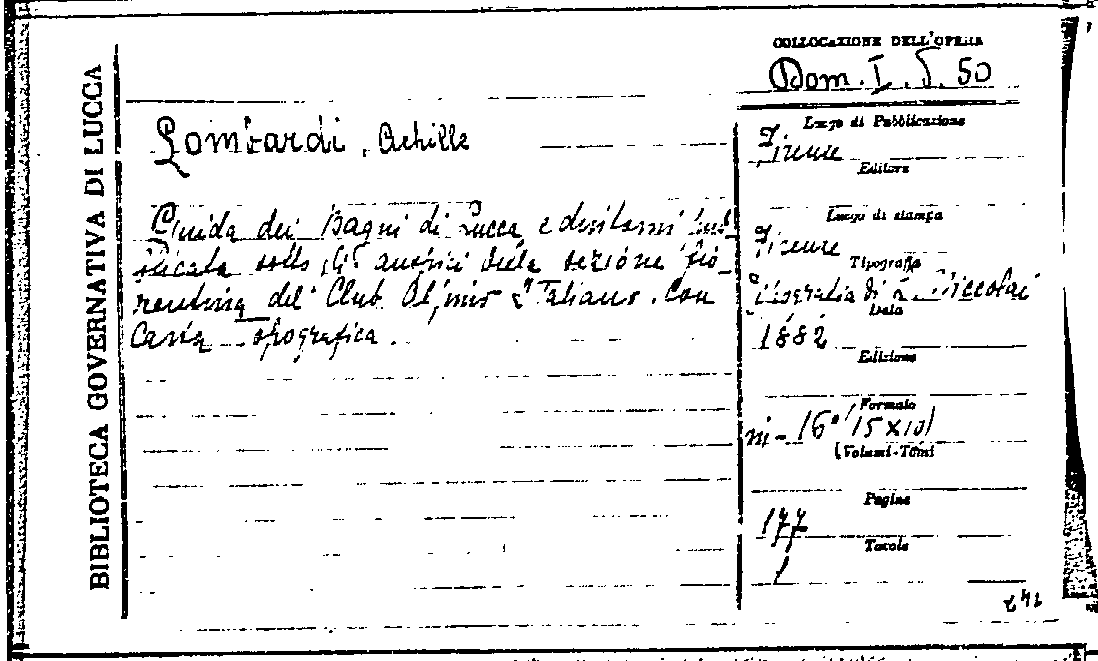 BIBLIOTECA GOVERNATIVA DI LUCCA
COLLOCAZIONE DELL'OPERA
Dom. I. 5. 50
Lombardi, Achille
Guida dei Bagni di Lucca e dintorni pub-
blicata sotto gli auspici della sezione fio-
rentina del Club Alpino Italiano. Con
Carta topografica.
Luogo di Pubblicazione
Firenze
Editore
Luogo di stampa
Firenze
Tipografia
Tipografia di Niccolai
Data
1882
Edizione
Formato
in-16° (15x10)
(Volumi-Tomi
Pagine
177
Tavole
1